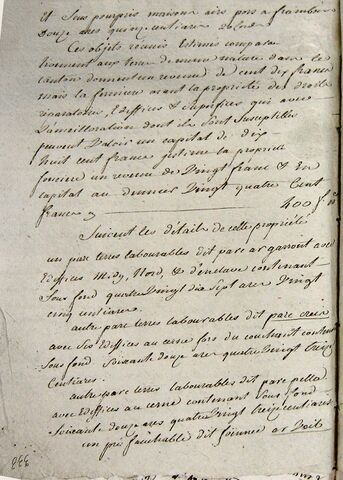 Et Sous pourpris maison aire pors a framboy
Douze ares quinze centiares
Ces objets reunis Estimés compara
tivement aux terres de meme nature dans le
canton donnent un revenu de cent dix francs
mais la fonciere ayant la propriete des droits
reparatoires, Edifices & Supefices qui avec
l'amelioration dont ils sont Susceptibles
peuvent Valoir un capital de dix
huit cent francs j'estime la propriete
fonciere un revenu de Vingt franc & En
capital au denier Vingt quatre Cent
francs 400 f
Suivent le détail de cette propriété
un parc terres labourables dit parc ar garront avec
Edifices Midy, Nord, & d'enclave contenant
Sous fond quatre Vingt dix Sept ares Vingt
cinq centiares.
autre parc terres labourables dit parc creis
avec Ses Edifices au cerne fors du couchant contenant
Sous fond Soixante douze ares quatre Vingt treize
Centiares.
autre parc terres labourables dit parc pella
avec Edifices au cerne contenant Sous fond
Soixante douze ares quatre Vingt treize centiares
un pré fauchable dit foennec ar
338